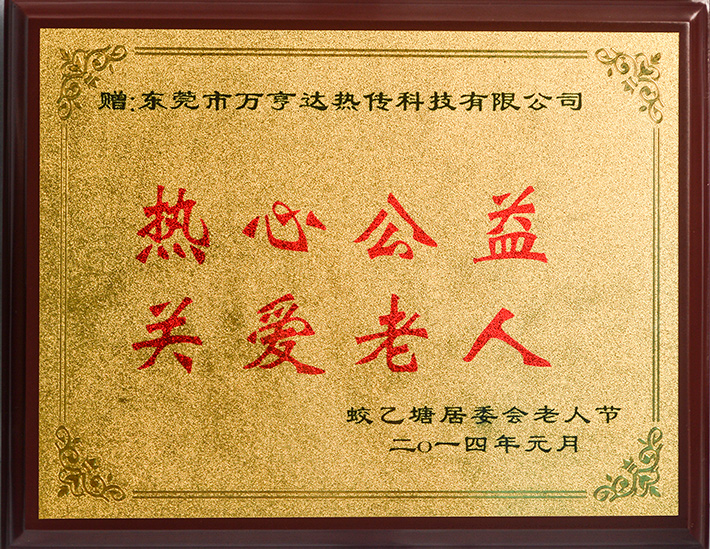 赠:东莞市万亨达热传科技有限公司
热心公益
关爱老人
蛟乙塘居委会老人节
二〇一四年元月